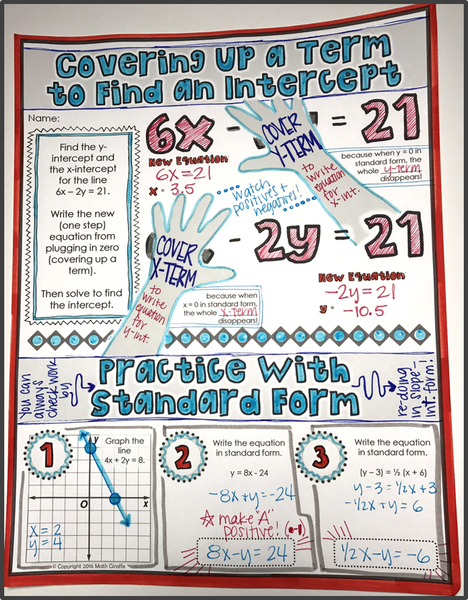 Covering Up a Term
to Find an Intercept
Name:
Find the y-
intercept and
the x-intercept
for the line
6x – 2y = 21.
Write the new
(one step)
equation from
plugging in zero
(covering up a
term).
Then solve to find
the intercept.
6x - = 21
New Equation
6x=21
x = 3.5
COVER
Y-TERM
to
write
equation
for
x-int.
because when y = 0 in
standard form, the
whole y-term
disappears!
watch
positives +
negatives!
- 2y = 21
COVER
X-TERM
to
write
equation
for
y-int.
because when
x = 0 in standard form,
the whole x-term
disappears!
New Equation
-2y = 21
y = -10.5
You can
always
check work
by
Practice With
Standard Form
re-doing
in slope-
int. form!
1
Graph the
line
4x + 2y = 8.
y
O
x
x = 2
y = 4
© Copyright 2016 Math Giraffe
2
Write the equation
in standard form.
y = 8x - 24
-8x+y=-24
make "A"
positive! (•-1)
8x-y = 24
3
Write the equation
in standard form.
(y – 3) = ½ (x + 6)
y - 3 = 1/2x + 3
-1/2x + y = 6
1/2x-y = -6